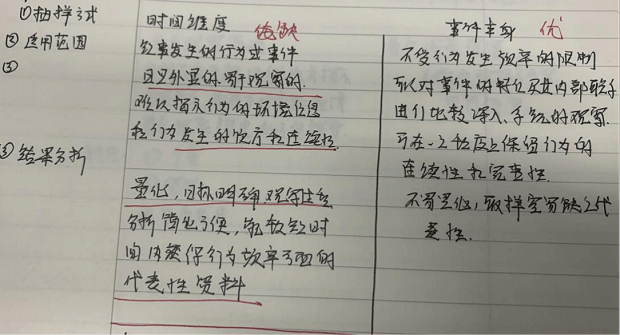 ①抽样方式
②适用范围
③
③结果分析
时间维度 优缺
较事发生的行为或事件
且是外显的易于观察的.
难以揭示行为的环境信息
和行为发生的
和连续性
量化,目标明确
分析简也方便,
时
间内获得行为频率方面的
代表性资料
事件本身 优
不受行为发生频率的限制
可以对事件的
及其内部联系
进行比较深入、
的观察.
可在一定程度上保留行为的
连续性和完整性.
不易量化,取样容易缺乏代
表性.